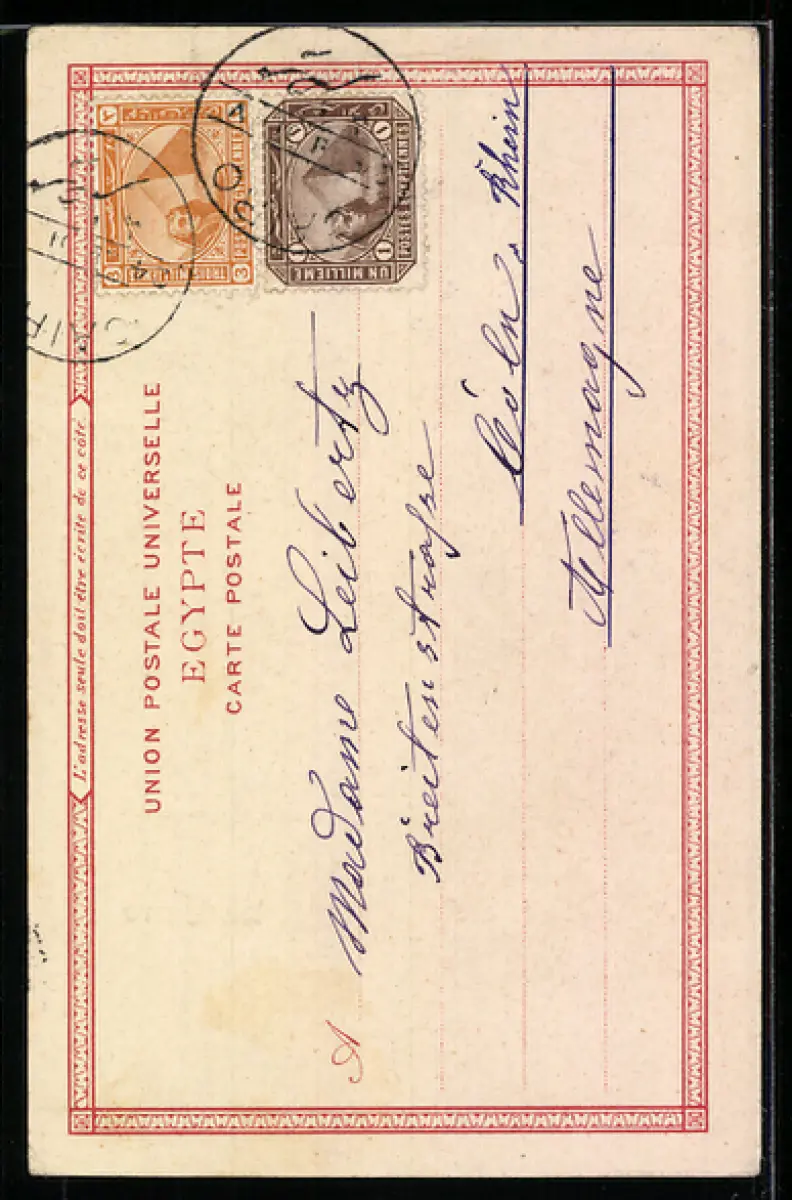 L'adresse seule doit être écrite de ce côté.
UNION POSTALE UNIVERSELLE
EGYPTE
CARTE POSTALE
UN MILLIEME
1
3
A Madame Leibertz
Breitenstrasse
Cöln, Rhein
Allemagne